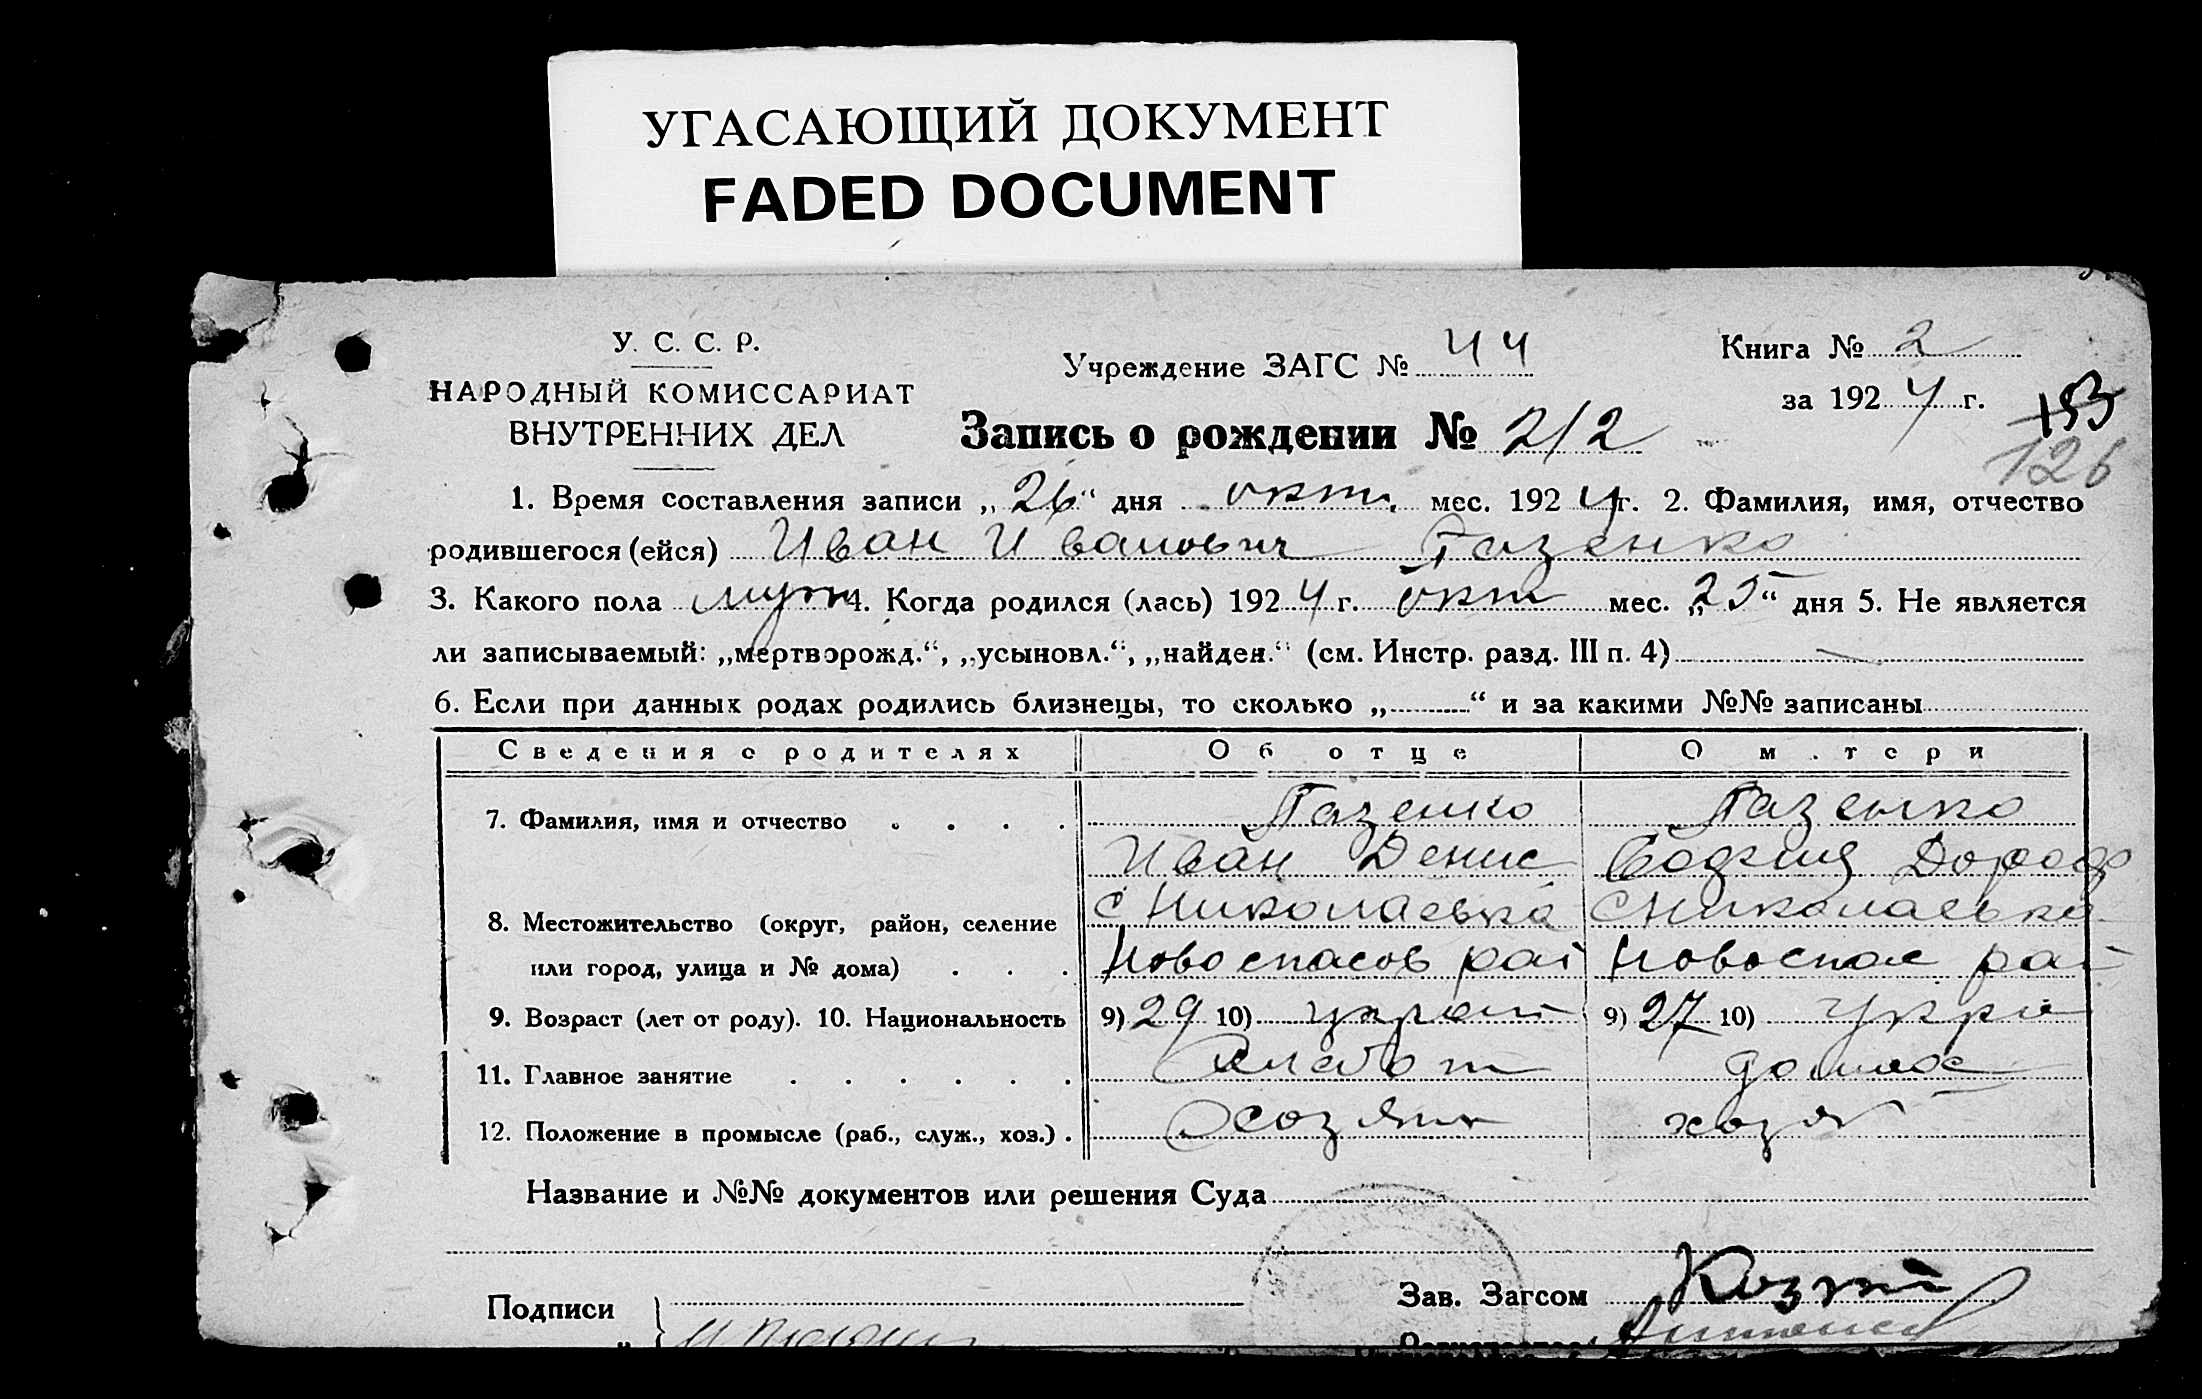 УГАСАЮЩИЙ ДОКУМЕНТ
FADED DOCUMENT
У. С. С. Р.
НАРОДНЫЙ КОМИССАРИАТ
ВНУТРЕННИХ ДЕЛ
Учреждение ЗАГС № 44
Книга № 2
за 1924 г.
Запись о рождении № 212
153
126
1. Время составления записи „26“ дня окт. мес. 1924 г. 2. Фамилия, имя, отчество
родившегося (ейся) Иван Иванович Газенко
3. Какого пола муж 4. Когда родился (лась) 1924 г. окт мес. „25“ дня 5. Не является
ли записываемый: „мертворожд.“, „усыновл.“, „найден.“ (см. Инстр. разд. III п. 4)
6. Если при данных родах родились близнецы, то сколько „ “ и за какими №№ записаны
Сведения о родителях Об отце О м.тери
7. Фамилия, имя и отчество Газенко Газенко
Иван Денис Дороф
8. Местожительство (округ, район, селение с Николаевка с Николаевка
или город, улица и № дома) Новоспасов рай Новоспас рай
9. Возраст (лет от роду). 10. Национальность 9) 29 10) украи 9) 27 10) укра
11. Главное занятие хлебоп домах
12. Положение в промысле (раб., служ., хоз.) хозяин хозя
Название и №№ документов или решения Суда
Подписи
Зав. Загсом